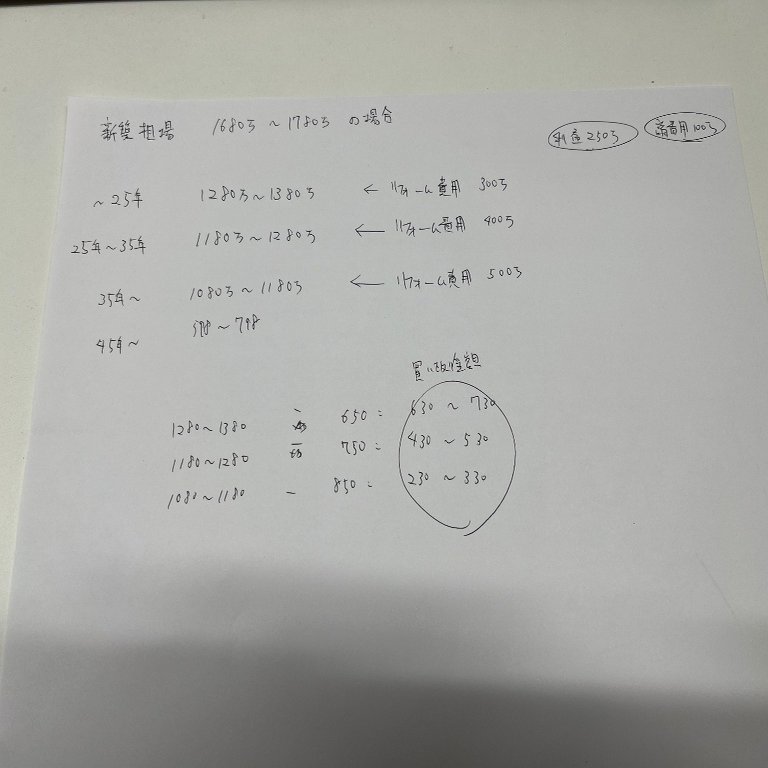 新築相場 1680万～1780万 の場合
利益250万 諸費用100万
～25年 1280万～1380万 ← リフォーム費用 300万
25年～35年 1180万～1280万 ← リフォーム費用 400万
35年～ 1080万～1180万 ← リフォーム費用 500万
45年～ 598～798
買い取り金額
1280～1380 － 650 = 630～730
1180～1280 － 750 = 430～530
1080～1180 － 850 = 230～330